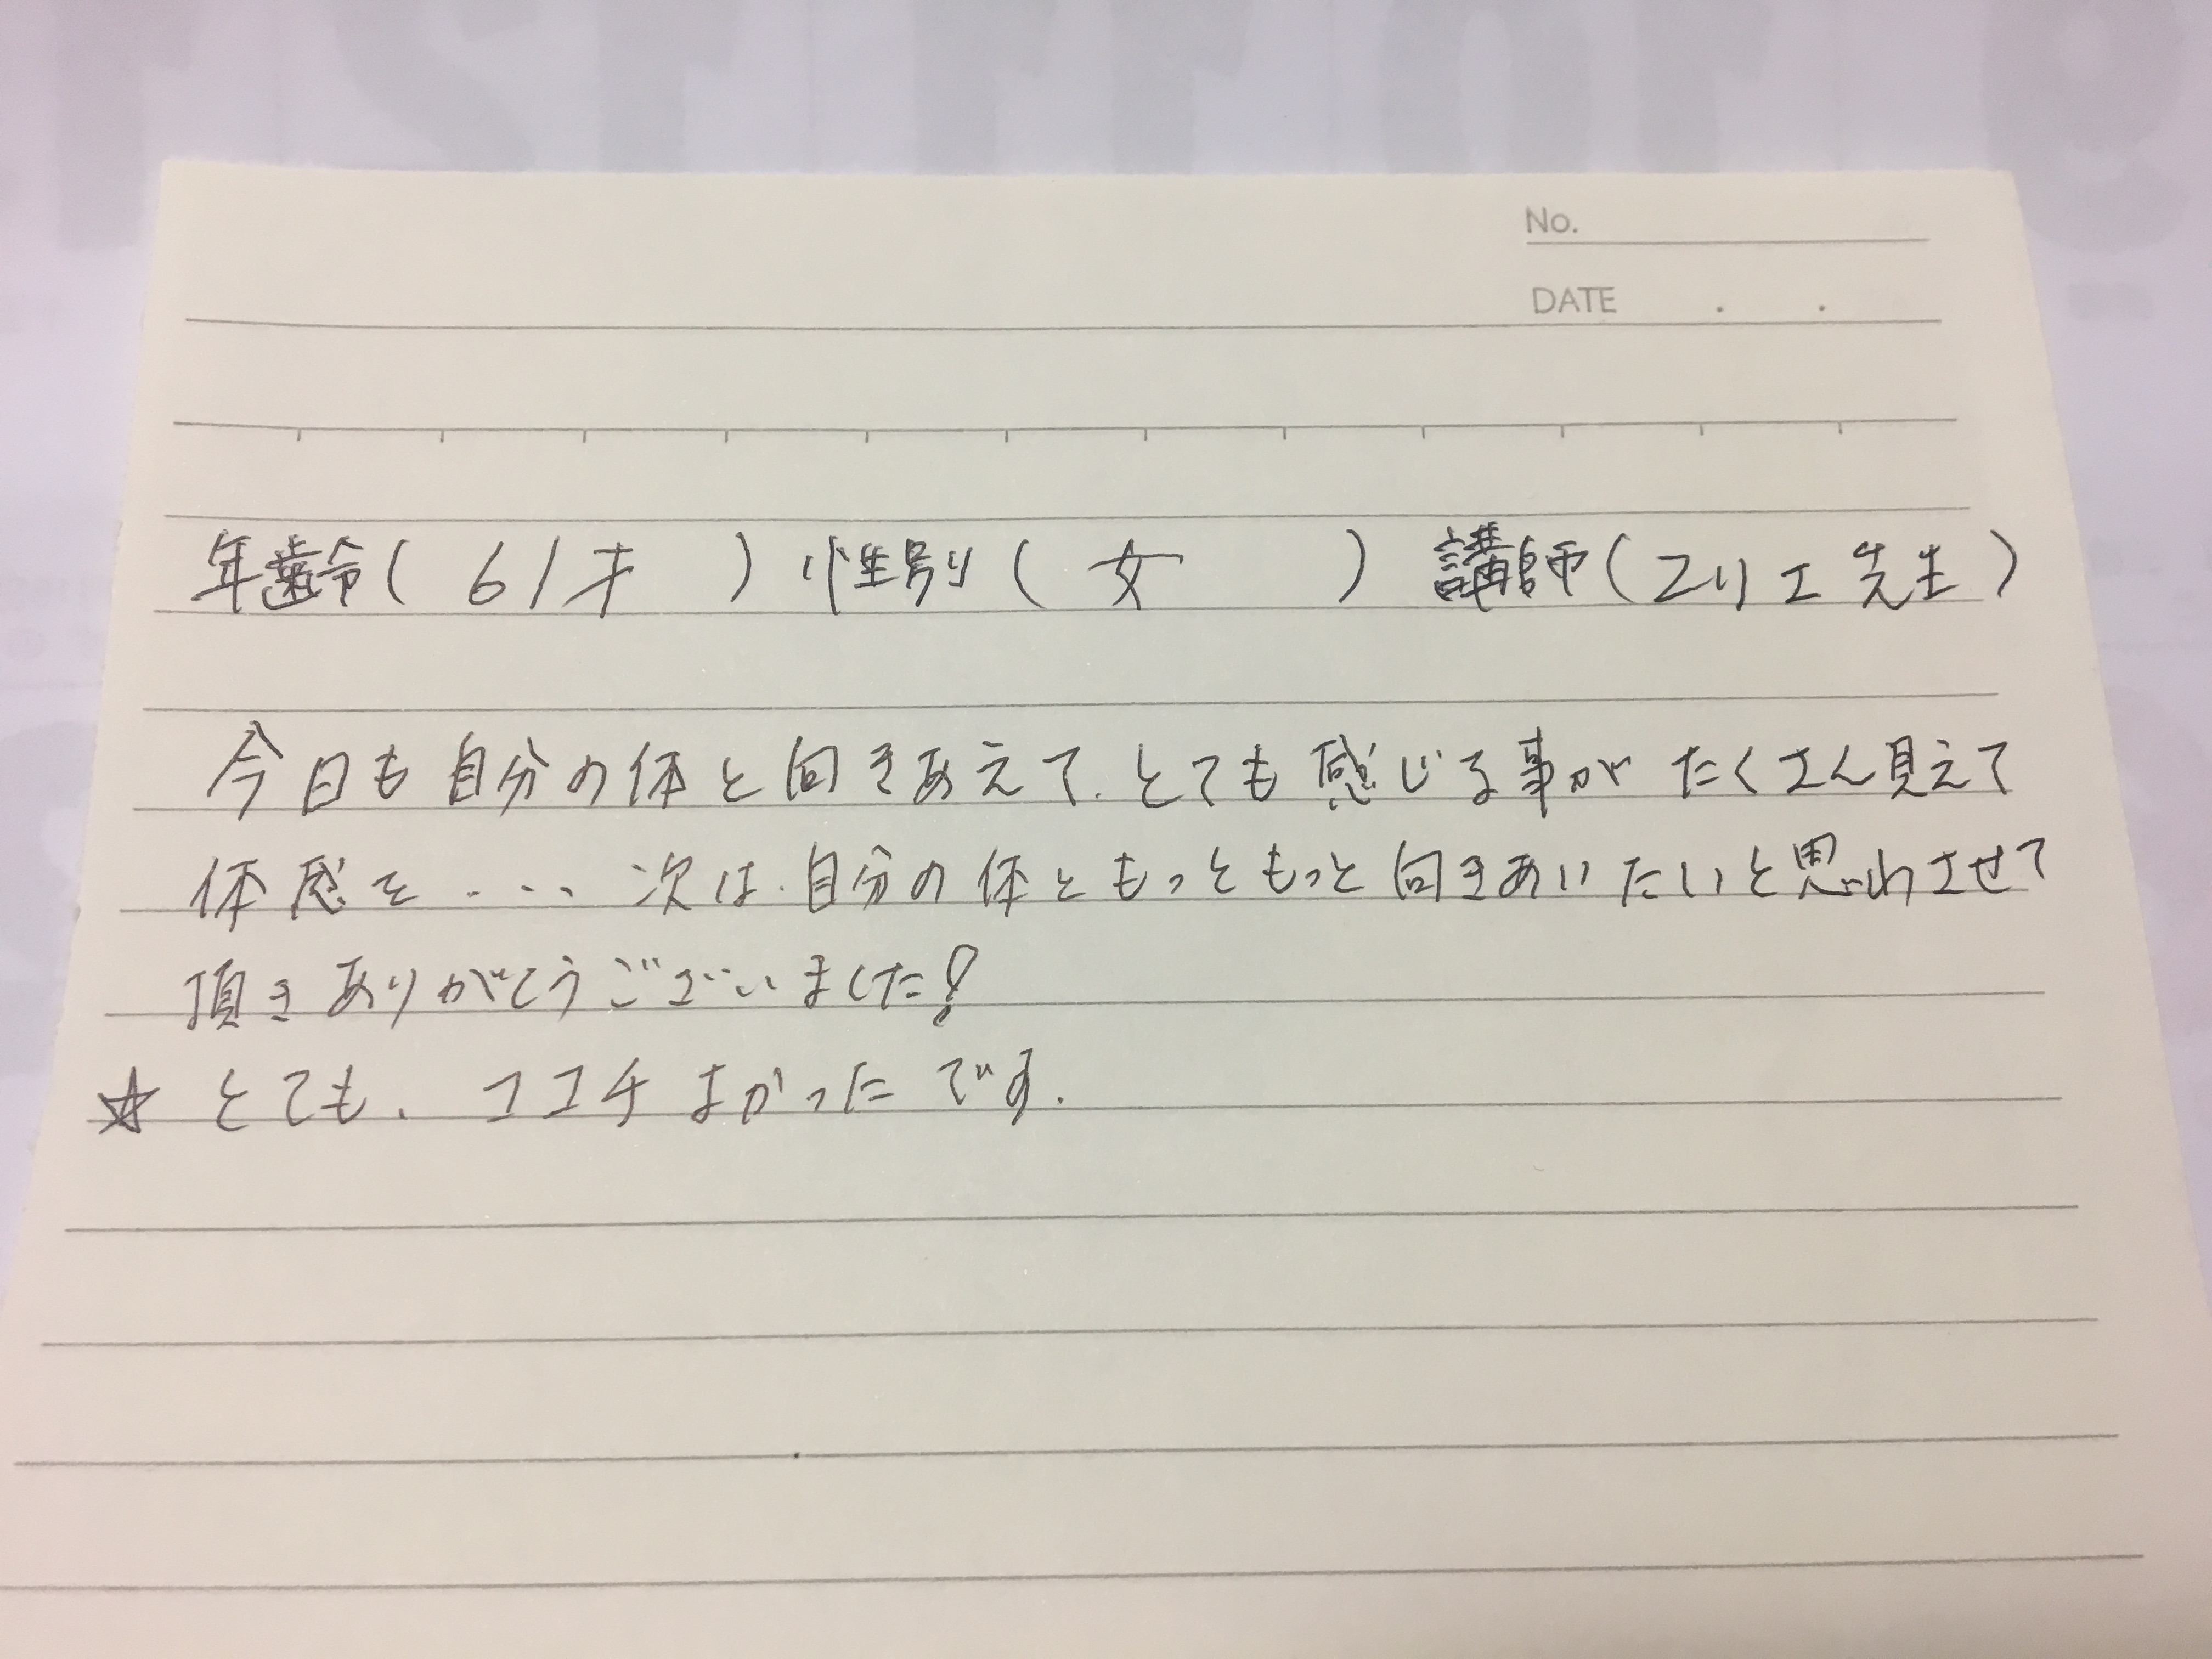 No.
DATE . .
年齢( 61才 ) 性別( 女 ) 講師(マリエ先生)
今日も自分の体と向きあえて、とても感じる事がたくさん見えて
体感を・・・・次は、自分の体ともっともっと向きあいたいと思わさせて
頂きありがとうございました!
☆とても、ココチよかったです.